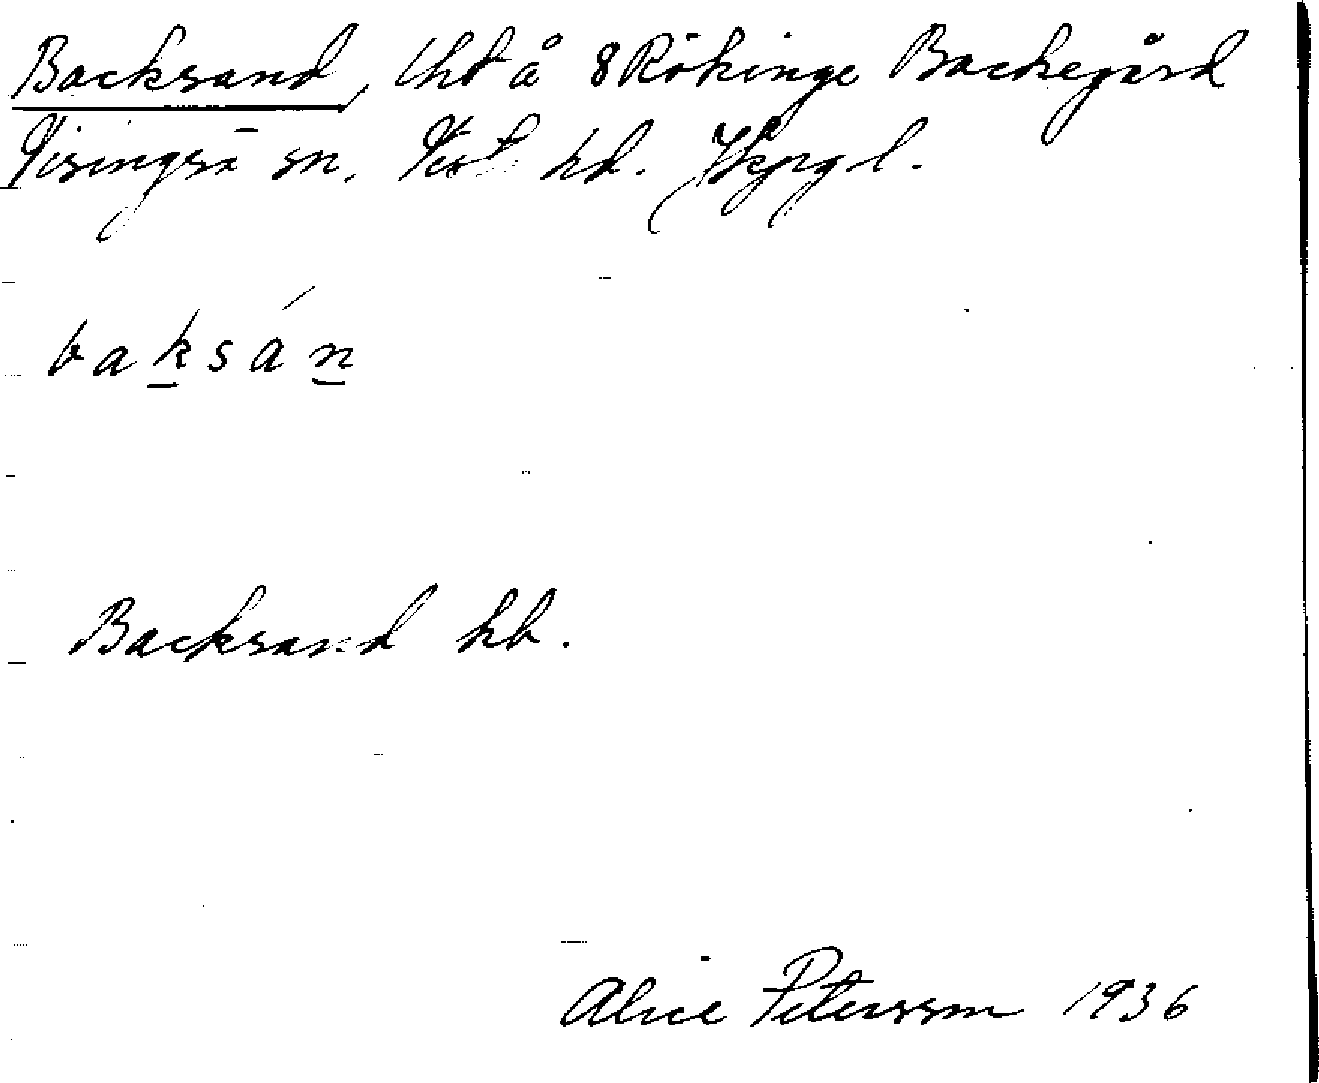 Backsand, lht å 8 Rökinge Backegård
Visingsö sn. Vist hd. Jkpgl.
baksán
Backsand hb.
Alice Petersson 1936